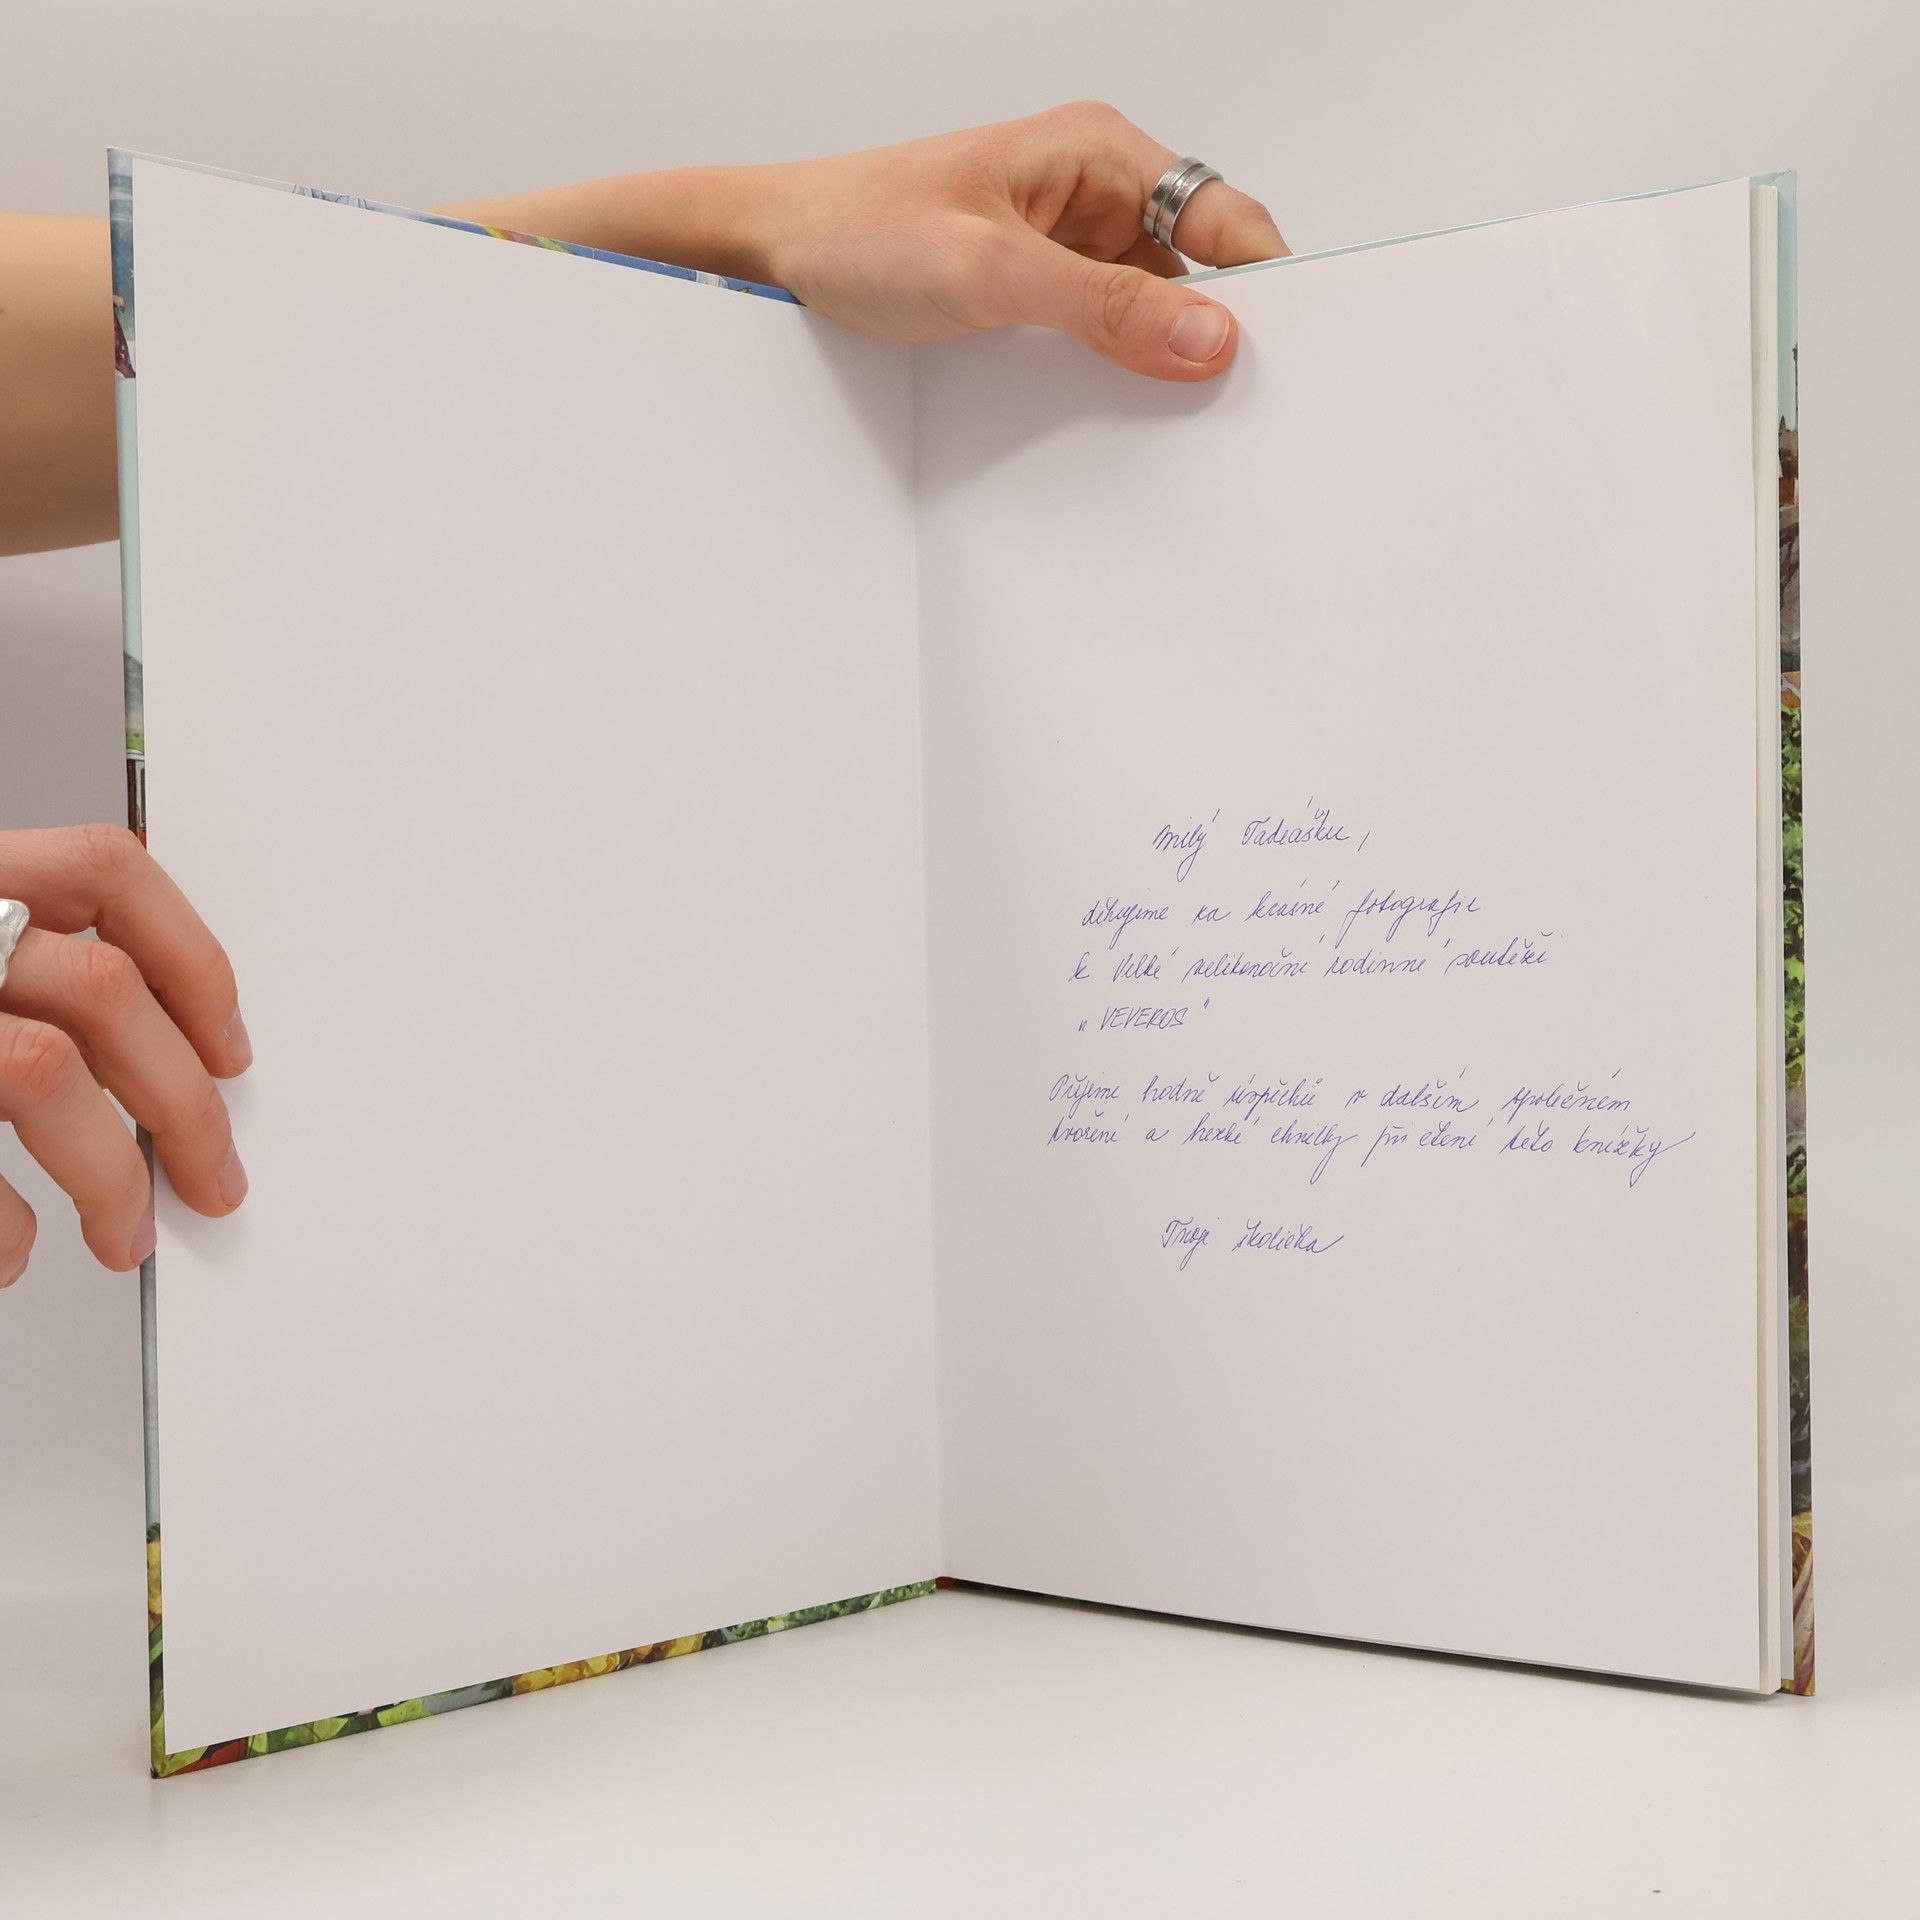 Milý Tadeášku,
děkujeme za krásné fotografie
k Velké velikonoční rodinné soutěži
„VEVEROS"
Přejeme hodně úspěchů v dalším společném
tvoření a hezké chvilky při čtení této knížky
Tvoje školička